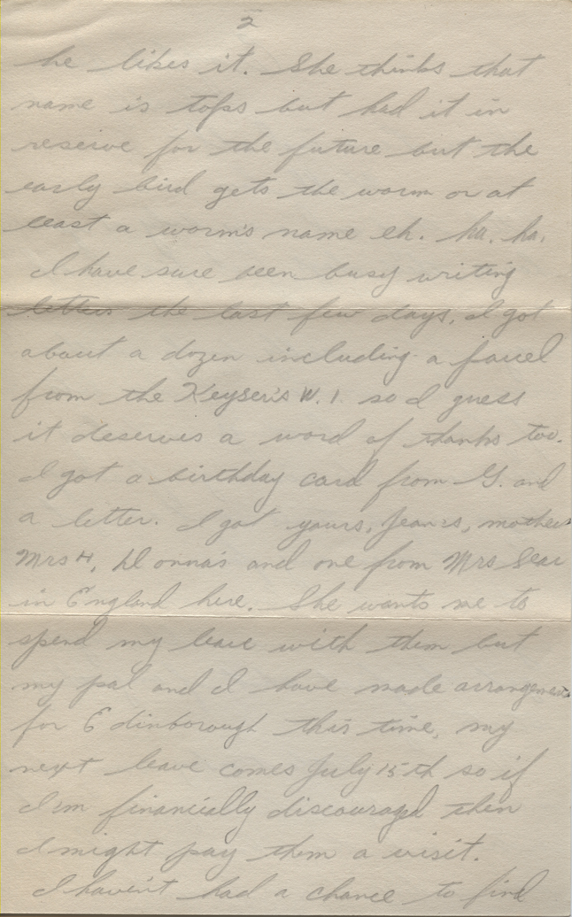 2
he likes it. She thinks that
name is tops but had it in
reserve for the future but the
early bird gets the worm or at
least a worm's name eh. ha. ha.
I have sure been busy writing
letters the last few days. I got
about a dozen including a parcel
from the Keyser's W. I. so I guess
it deserves a word of thanks too.
I got a birthday card from G. and
a letter. I got yours, Jean's, mother's
Mrs H, Donna's and one from Mrs
in England here. She wants me to
spend my leave with them but
my pal and I have made arrangements
for Edinborough this time, my
next leave comes July 15th so if
I'm financially discouraged then
I might pay them a visit.
I haven't had a chance to find